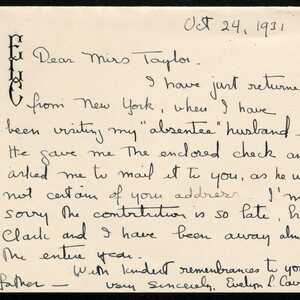 Oct 24, 1931
ELC
Dear Mrs Taylor.
I have just returne
from New York, where I have
been visiting my "absentee" husband –
He gave me the enclosed check an
asked me to mail it to you, as he w
not certain of your address. I'm
sorry the contribution is so late, b
Clark and I have been away alm
the entire year.
With kindest remembrances to you
father – Very sincerely, Evelyn L